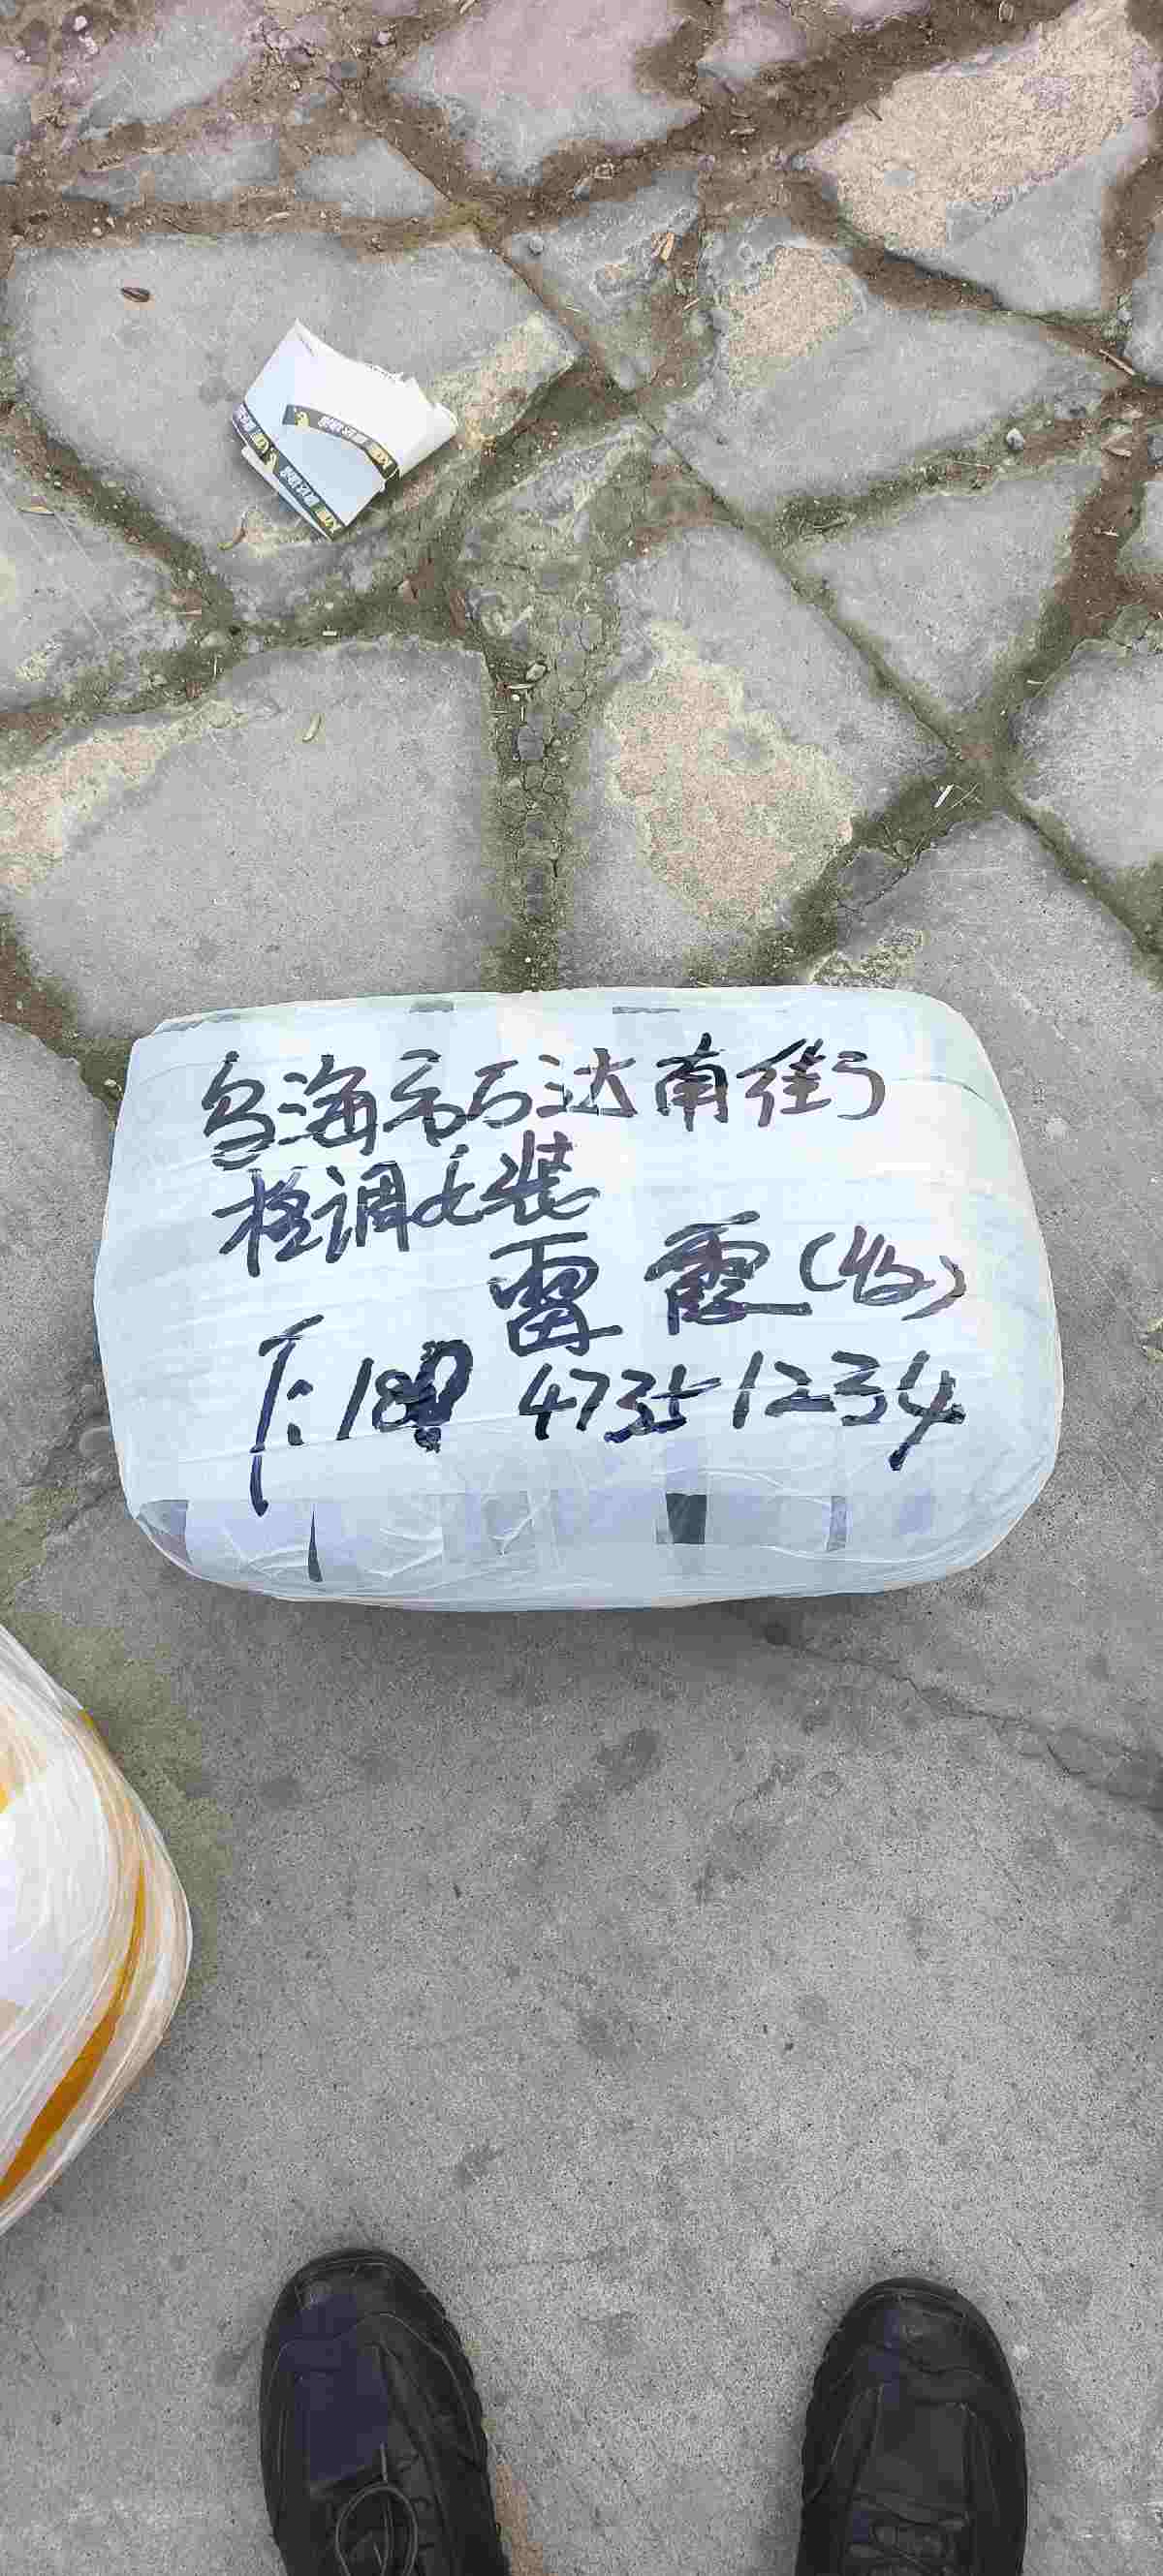 乌海市万达南街
格调女装
雷霞(收)
T:180 4735 1234